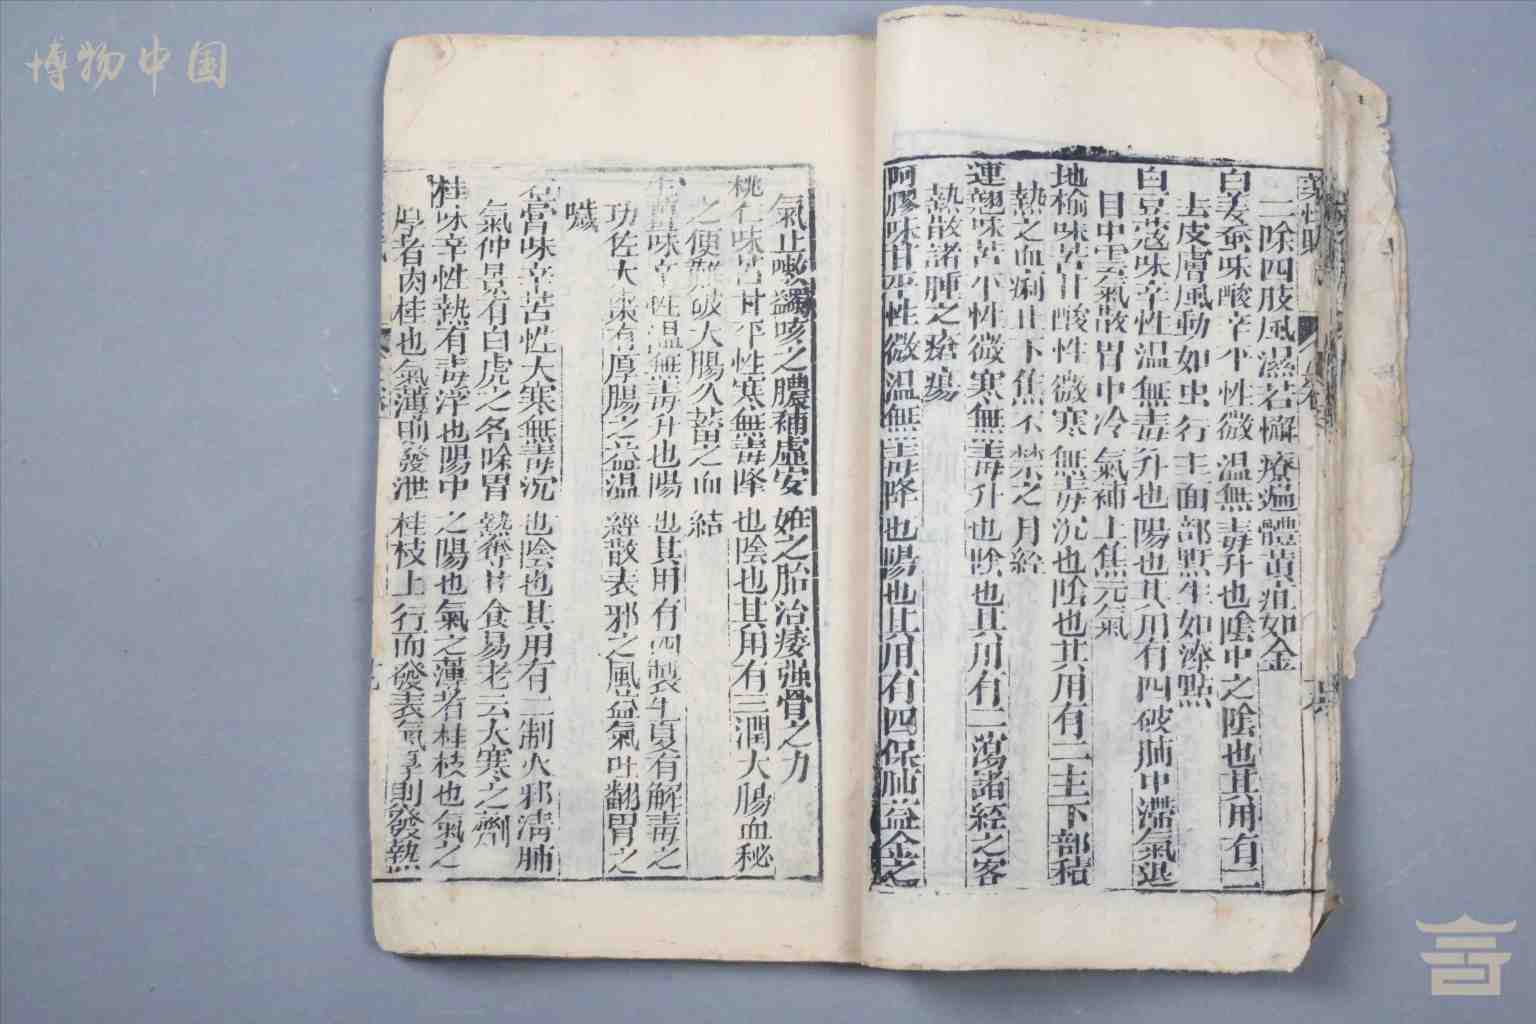 博物中国
二除四肢風濕若懈療遍體黄疸如金
白姜蚕味酸辛平性微温無毒升也陰中之陰也其用有二
去皮膚風動如虫行主面部㸃生如漆點
白豆蔻味辛性温無毒升也陽也其用有四破肺中滯氣退
目中雲氣散胃中冷氣補上焦元氣
地榆味苦甘酸性微寒無毒沉也陰也其用有二主下部積
熱之血痢止下焦不禁之月經
連翹味苦平性微寒無毒升也陰也其用有二瀉諸經之客
熱散諸腫之瘡瘍
阿膠味甘平性微温無毒降也陽也其用有四保肺益金之
氣止嗽蠲咳之膿補虛安妊之胎治痿强骨之力
桃仁味苦甘平性寒無毒降也陰也其用有三潤大腸血秘
之便難破大腸久蓄之血結
味辛性温無毒升也陽也其用有四製生夏有解毒之
功佐大棗有厚腸之益温經散表邪之風益氣吐翻胃之
噦
石膏味辛苦性大寒無毒沉也陰也其用有二制火邪清肺
氣仲景有白虎之名除胃熱奪甘食易老云大寒之劑
桂味辛性熱有毒浮也陽中之陽也氣之薄者桂枝也氣之
厚者肉桂也氣薄則發泄桂枝上行而發表氣厚則發熱